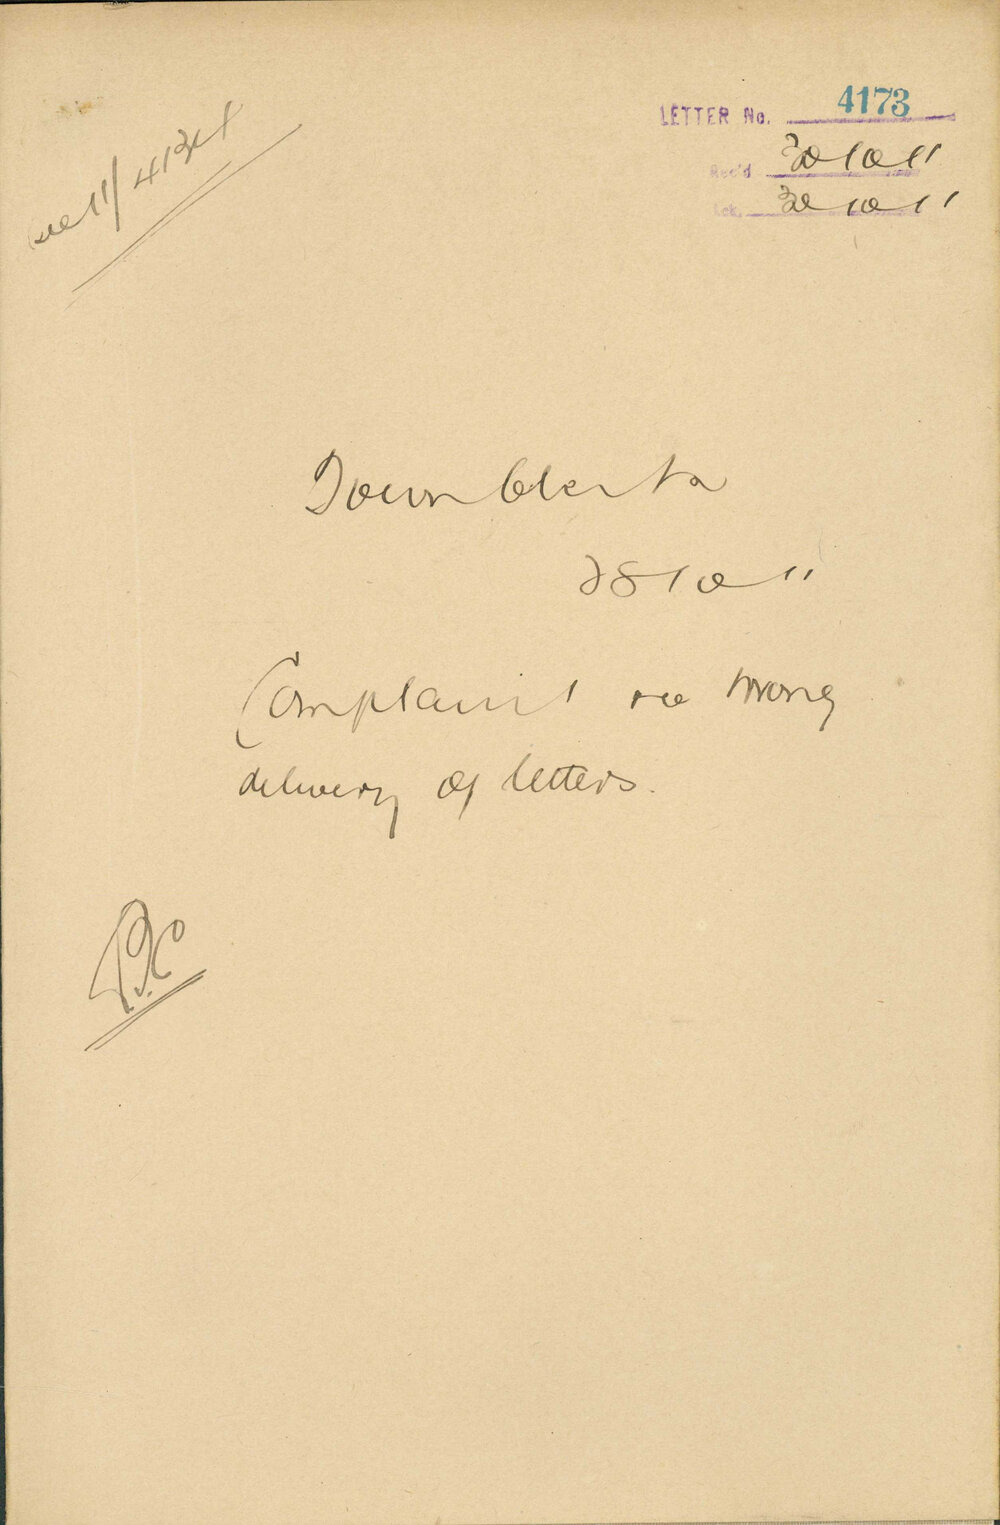 LETTER No. 4173
Rec'd 30 10 11
Ack. 30 10 11
11/4134
Town Clerk
28 10 11
Complaint re wrong
delivery of letters.